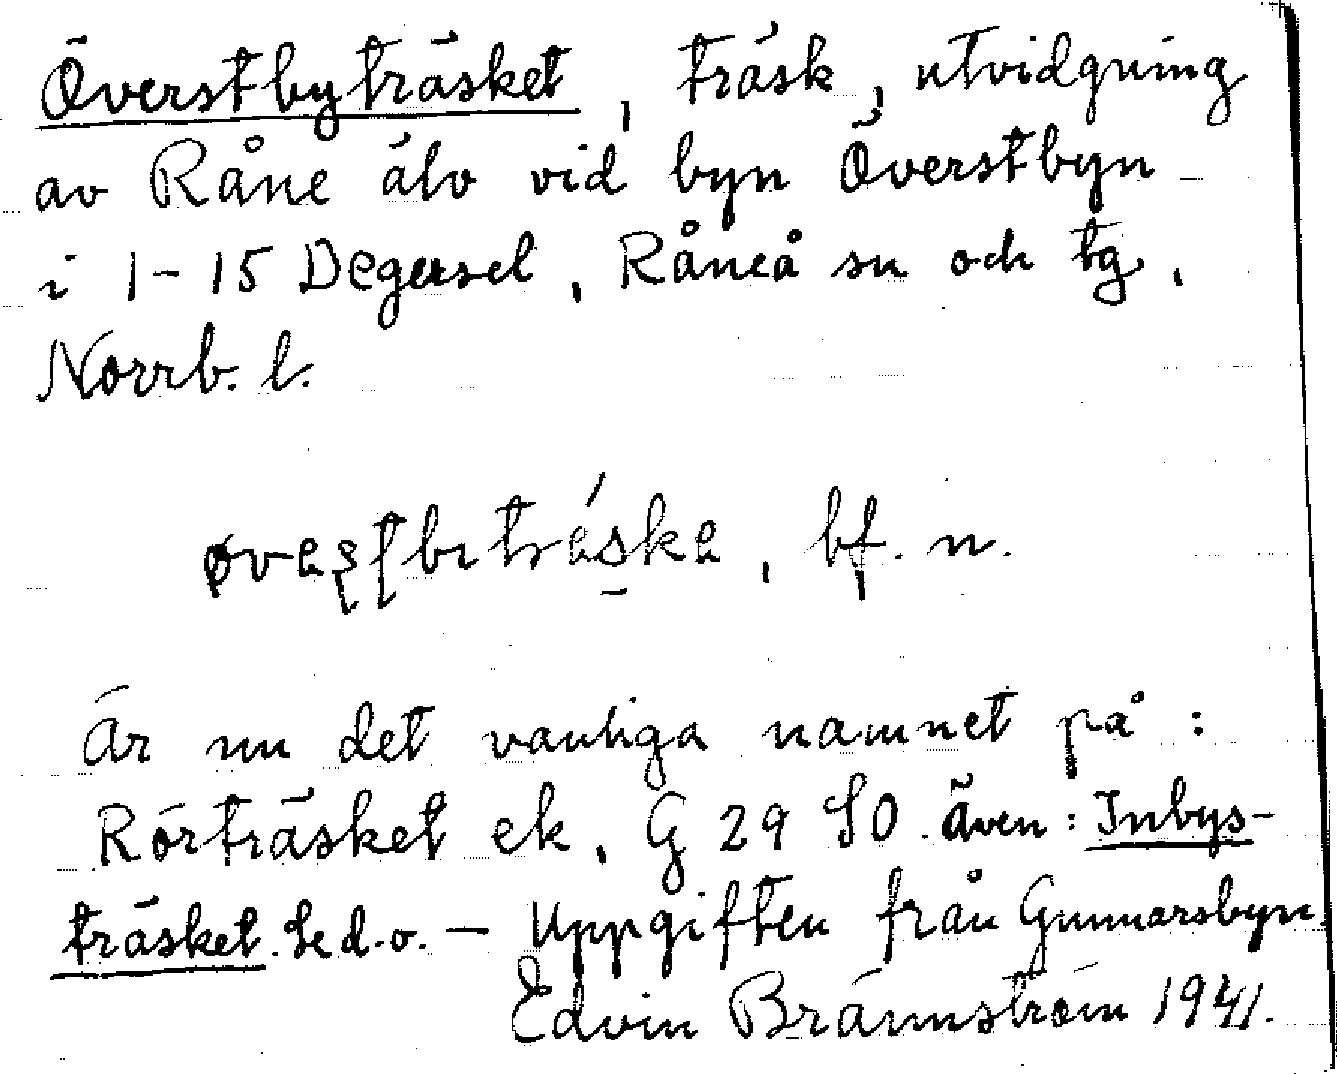 Överstbyträsket, träsk, utvidgning
av Råne älv vid byn Överstbyn
i 1-15 Degersel, Råneå sn och tg,
Norrb. l.
bf. n.
Är nu det vanliga namnet på:
Rörträsket ek. G 29 SO. även: Inbys-
träsket. Se d.o. — Uppgiften från Gunnarsbyn
Edvin Brännström 1941.